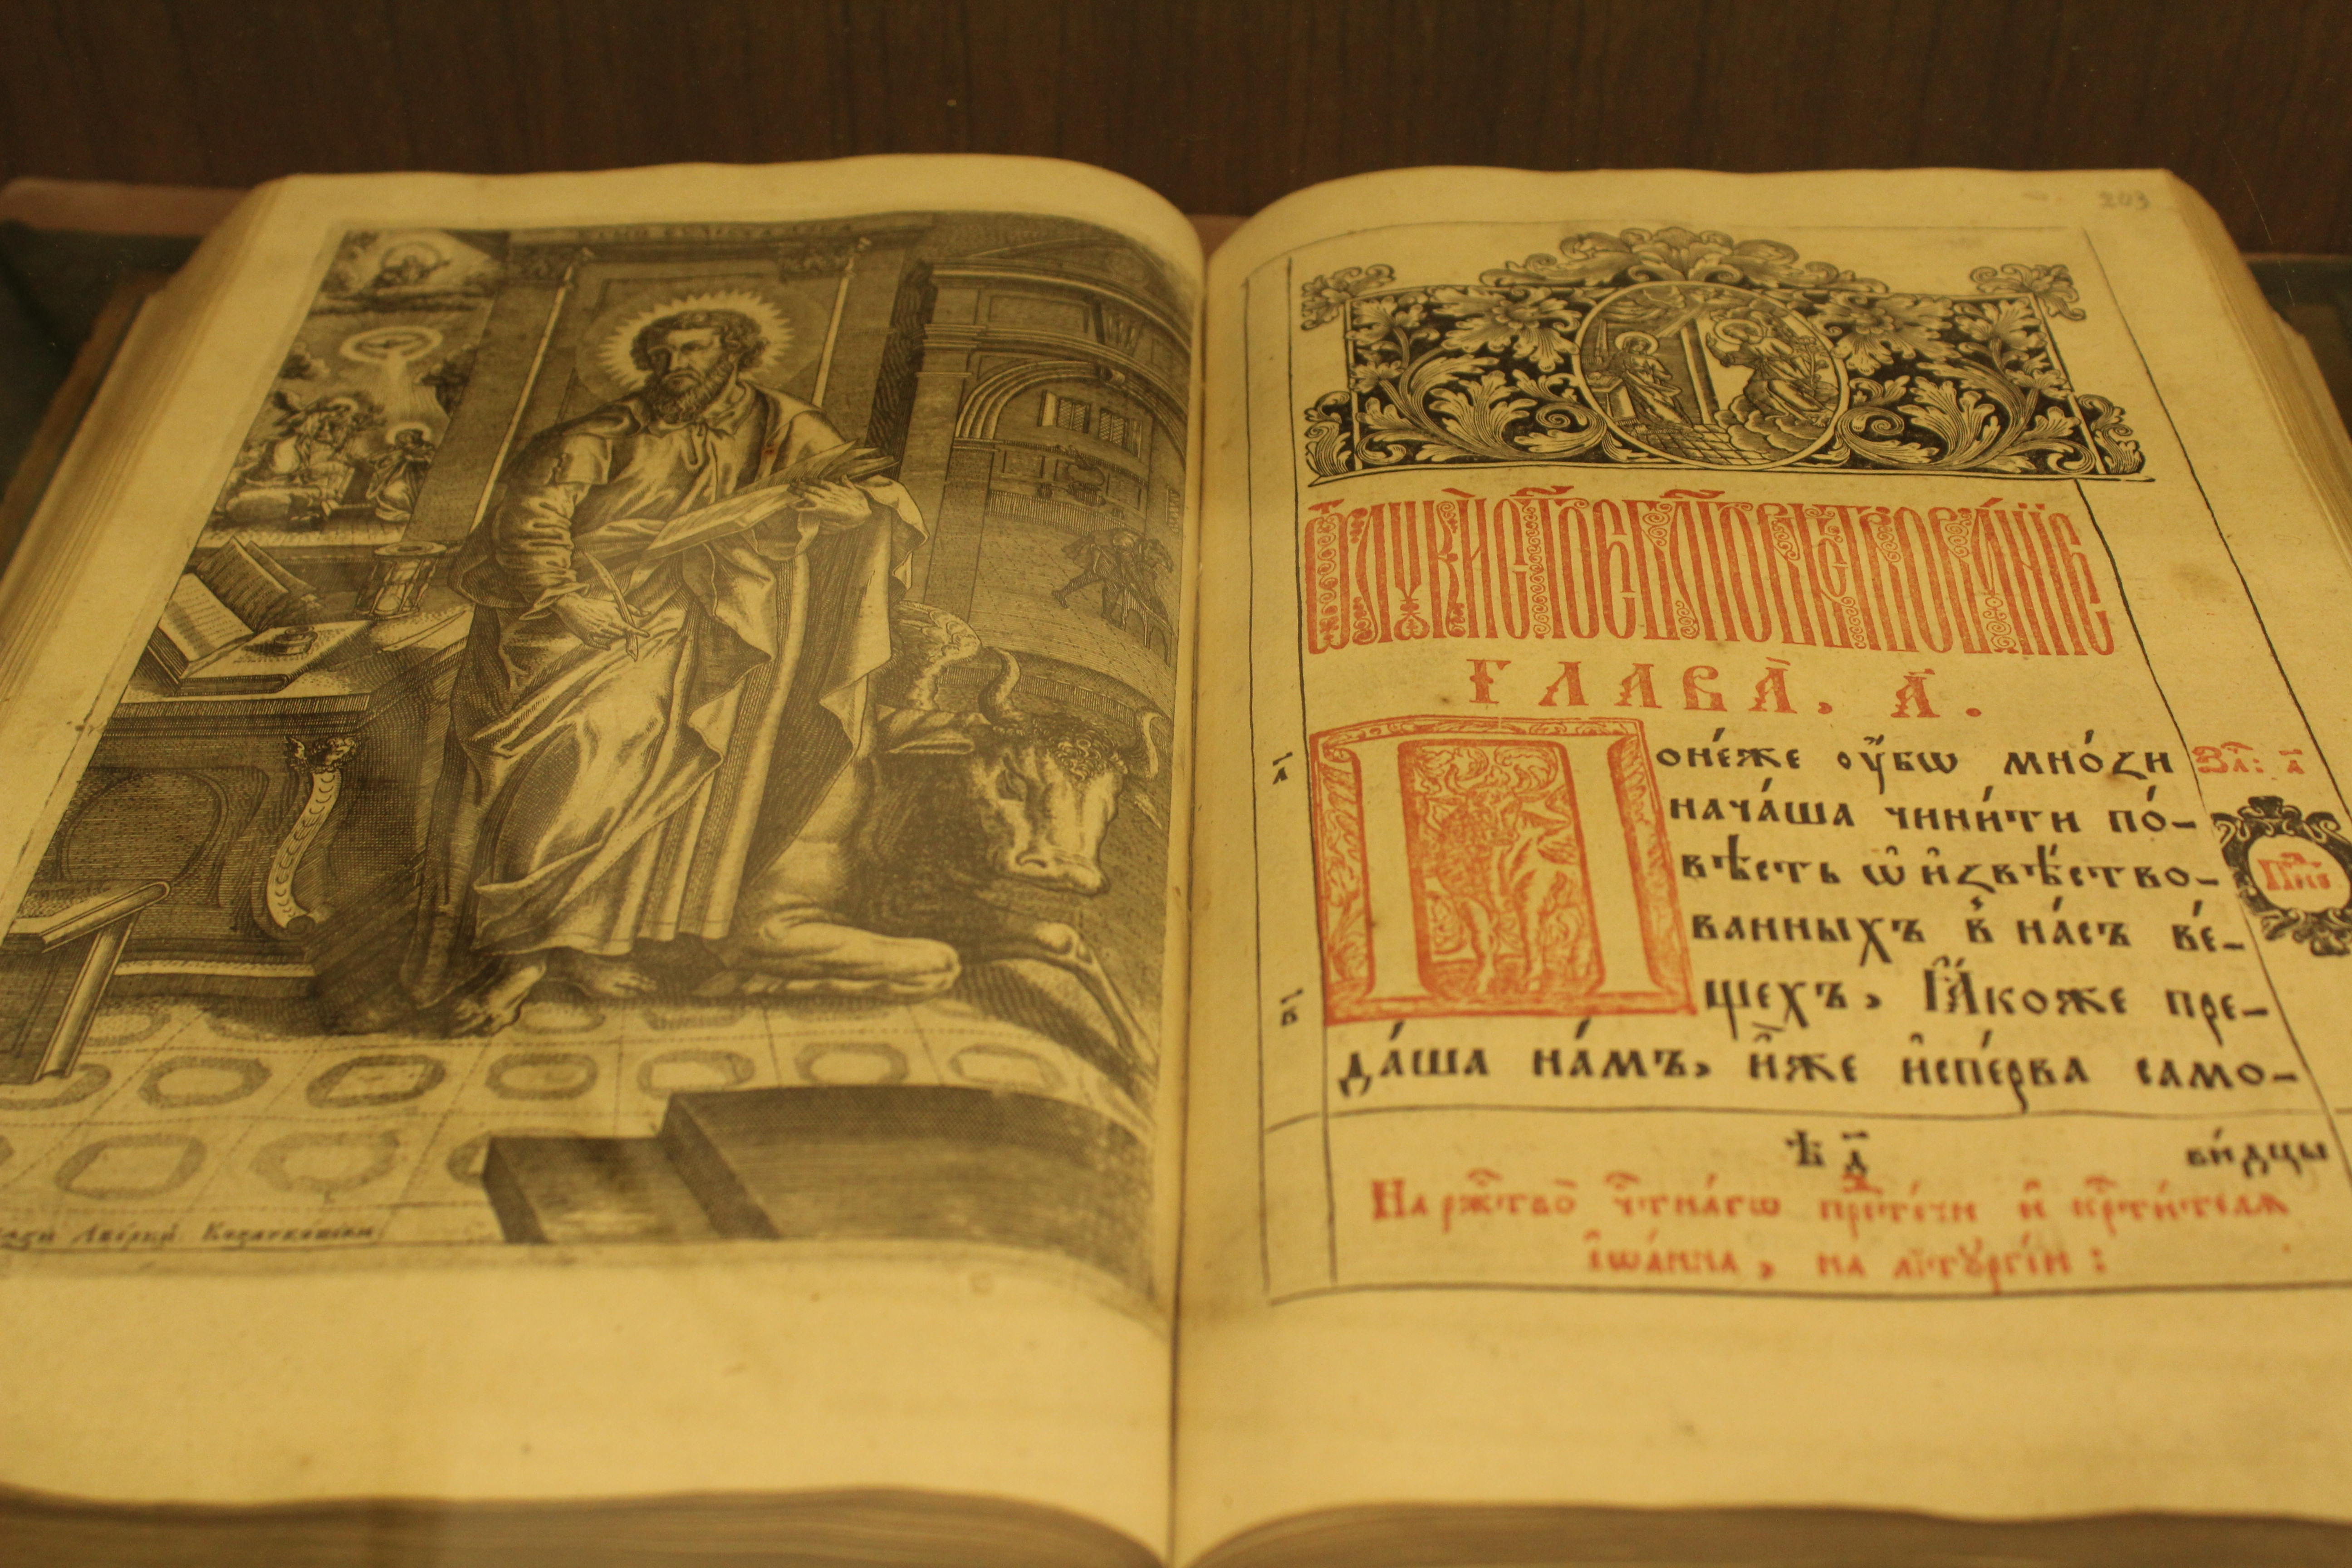 Аверкїй Козачковскїй
203
Ѿ лꙋкѝ ст҃о́е бл҃говѣствова́нїе
ГЛАВА̀, А҃.
Поне́же ᲂу҆́бѡ мно́ѕи
За҄: а҃
а҃
нача́ша чини́ти по́-
вѣсть ѡ҆ и҆звѣ́ство-
ванныхъ в̾ на́съ ве́-
щехъ, Ꙗ҆́коже пре-
в҃
да́ша на́мъ, и҆̀же и҆спе́рва само-
ви́дцы
На рж҃тво̀ чⷭ҇тна́гѡ прⷣте́чи и҆ крⷭ҇ти́телѧ
і҆ѡа́нна, на лїтꙋргі́и: